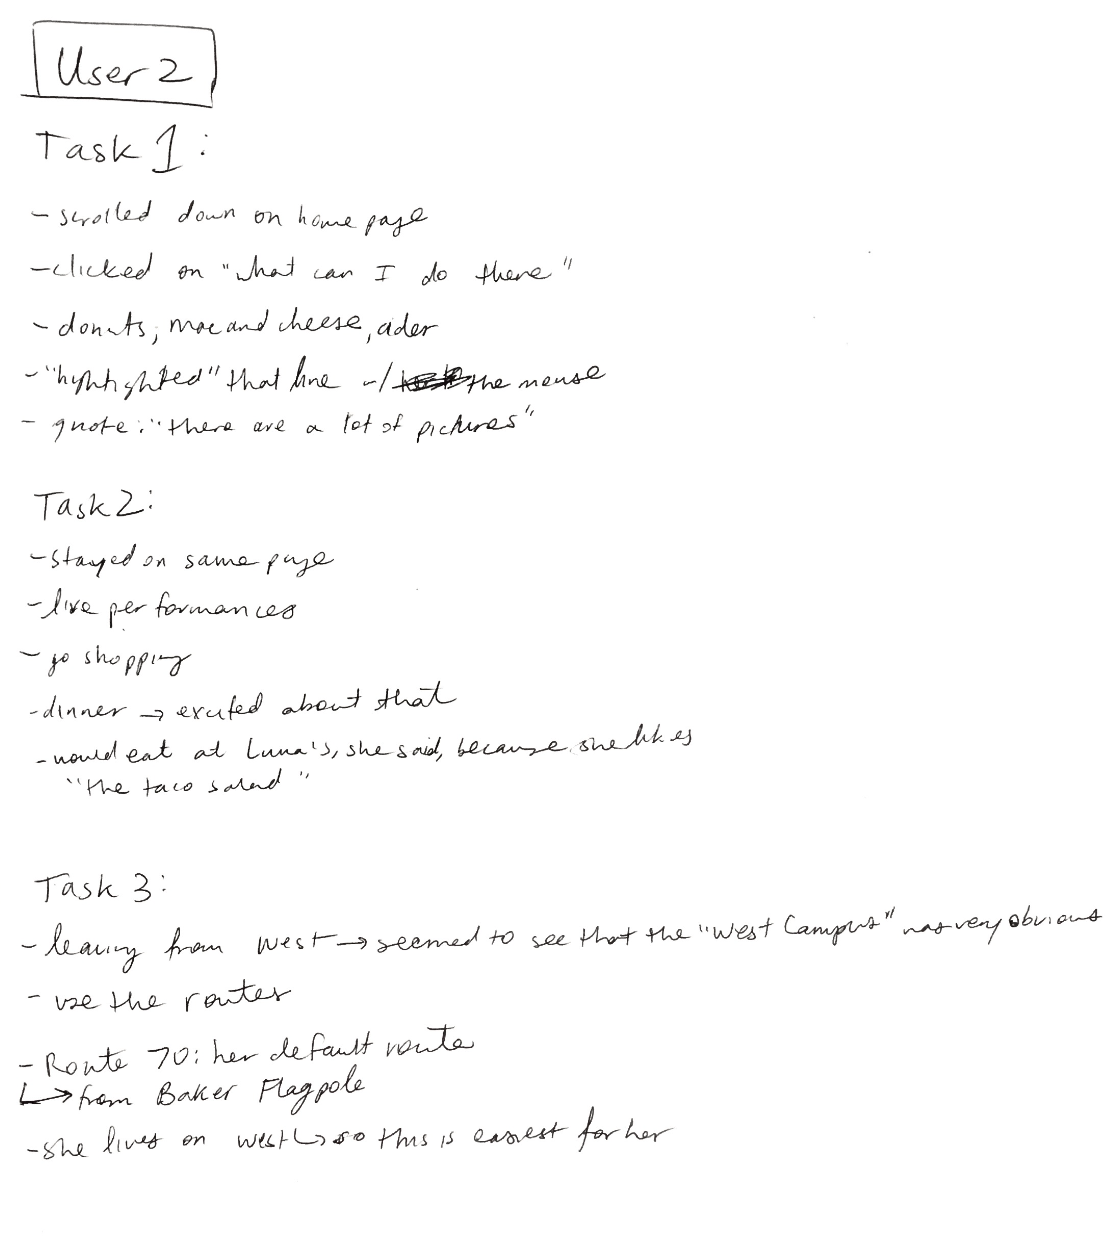 User 2
Task 1:
- scrolled down on home page
- clicked on "what can I do there"
- donuts, mac and cheese, cider
- "highlighted" that line w/ the mouse
- quote: "there are a lot of pictures"
Task 2:
- stayed on same page
- live performances
- go shopping
- dinner → excited about that
- would eat at Luna's, she said, because she likes
"the taco salad"
Task 3:
- leaving from West → seemed to see that the "West Campus" was very obvious
- use the routes
- Route 70: her default route
↳ from Baker Flagpole
- she lives on west ↳ so this is easiest for her